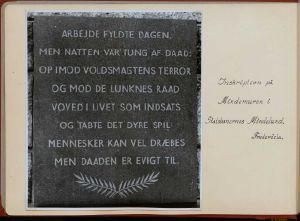 ARBEJDE FYLDTE DAGEN,
MEN NATTEN VAR TUNG AF DAAD:
OP IMOD VOLDSMAGTENS TERROR
OG MOD DE LUNKNES RAAD
VOVED I LIVET SOM INDSATS
OG TABTE DET DYRE SPIL
MENNESKER KAN VEL DRÆBES
MEN DAADEN ER EVIGT TIL.
Inskription på
Mindemuren i
Statsbanernes Mindelund.
Fredericia.